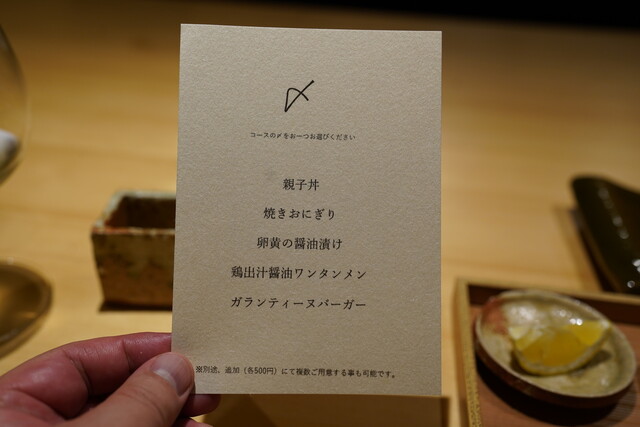 〆
コースの〆をお一つお選びください
親子丼
焼きおにぎり
卵黄の醤油漬け
鶏出汁醤油ワンタンメン
ガランティーヌバーガー
※別途、追加（各500円）にて複数ご用意する事も可能です。